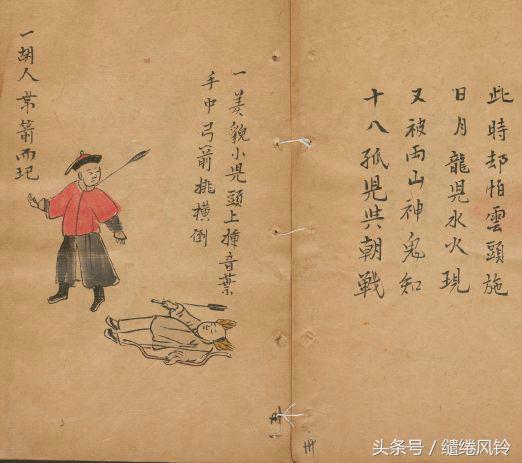 此時却怕雲頭施
日月龍児水火現
又被両山神鬼知
十八孤児共朝戦
一美貌小児頭上揷音葉
手中弓箭挑横倒
一胡人帯箭而
头条号 / 缱绻风铃